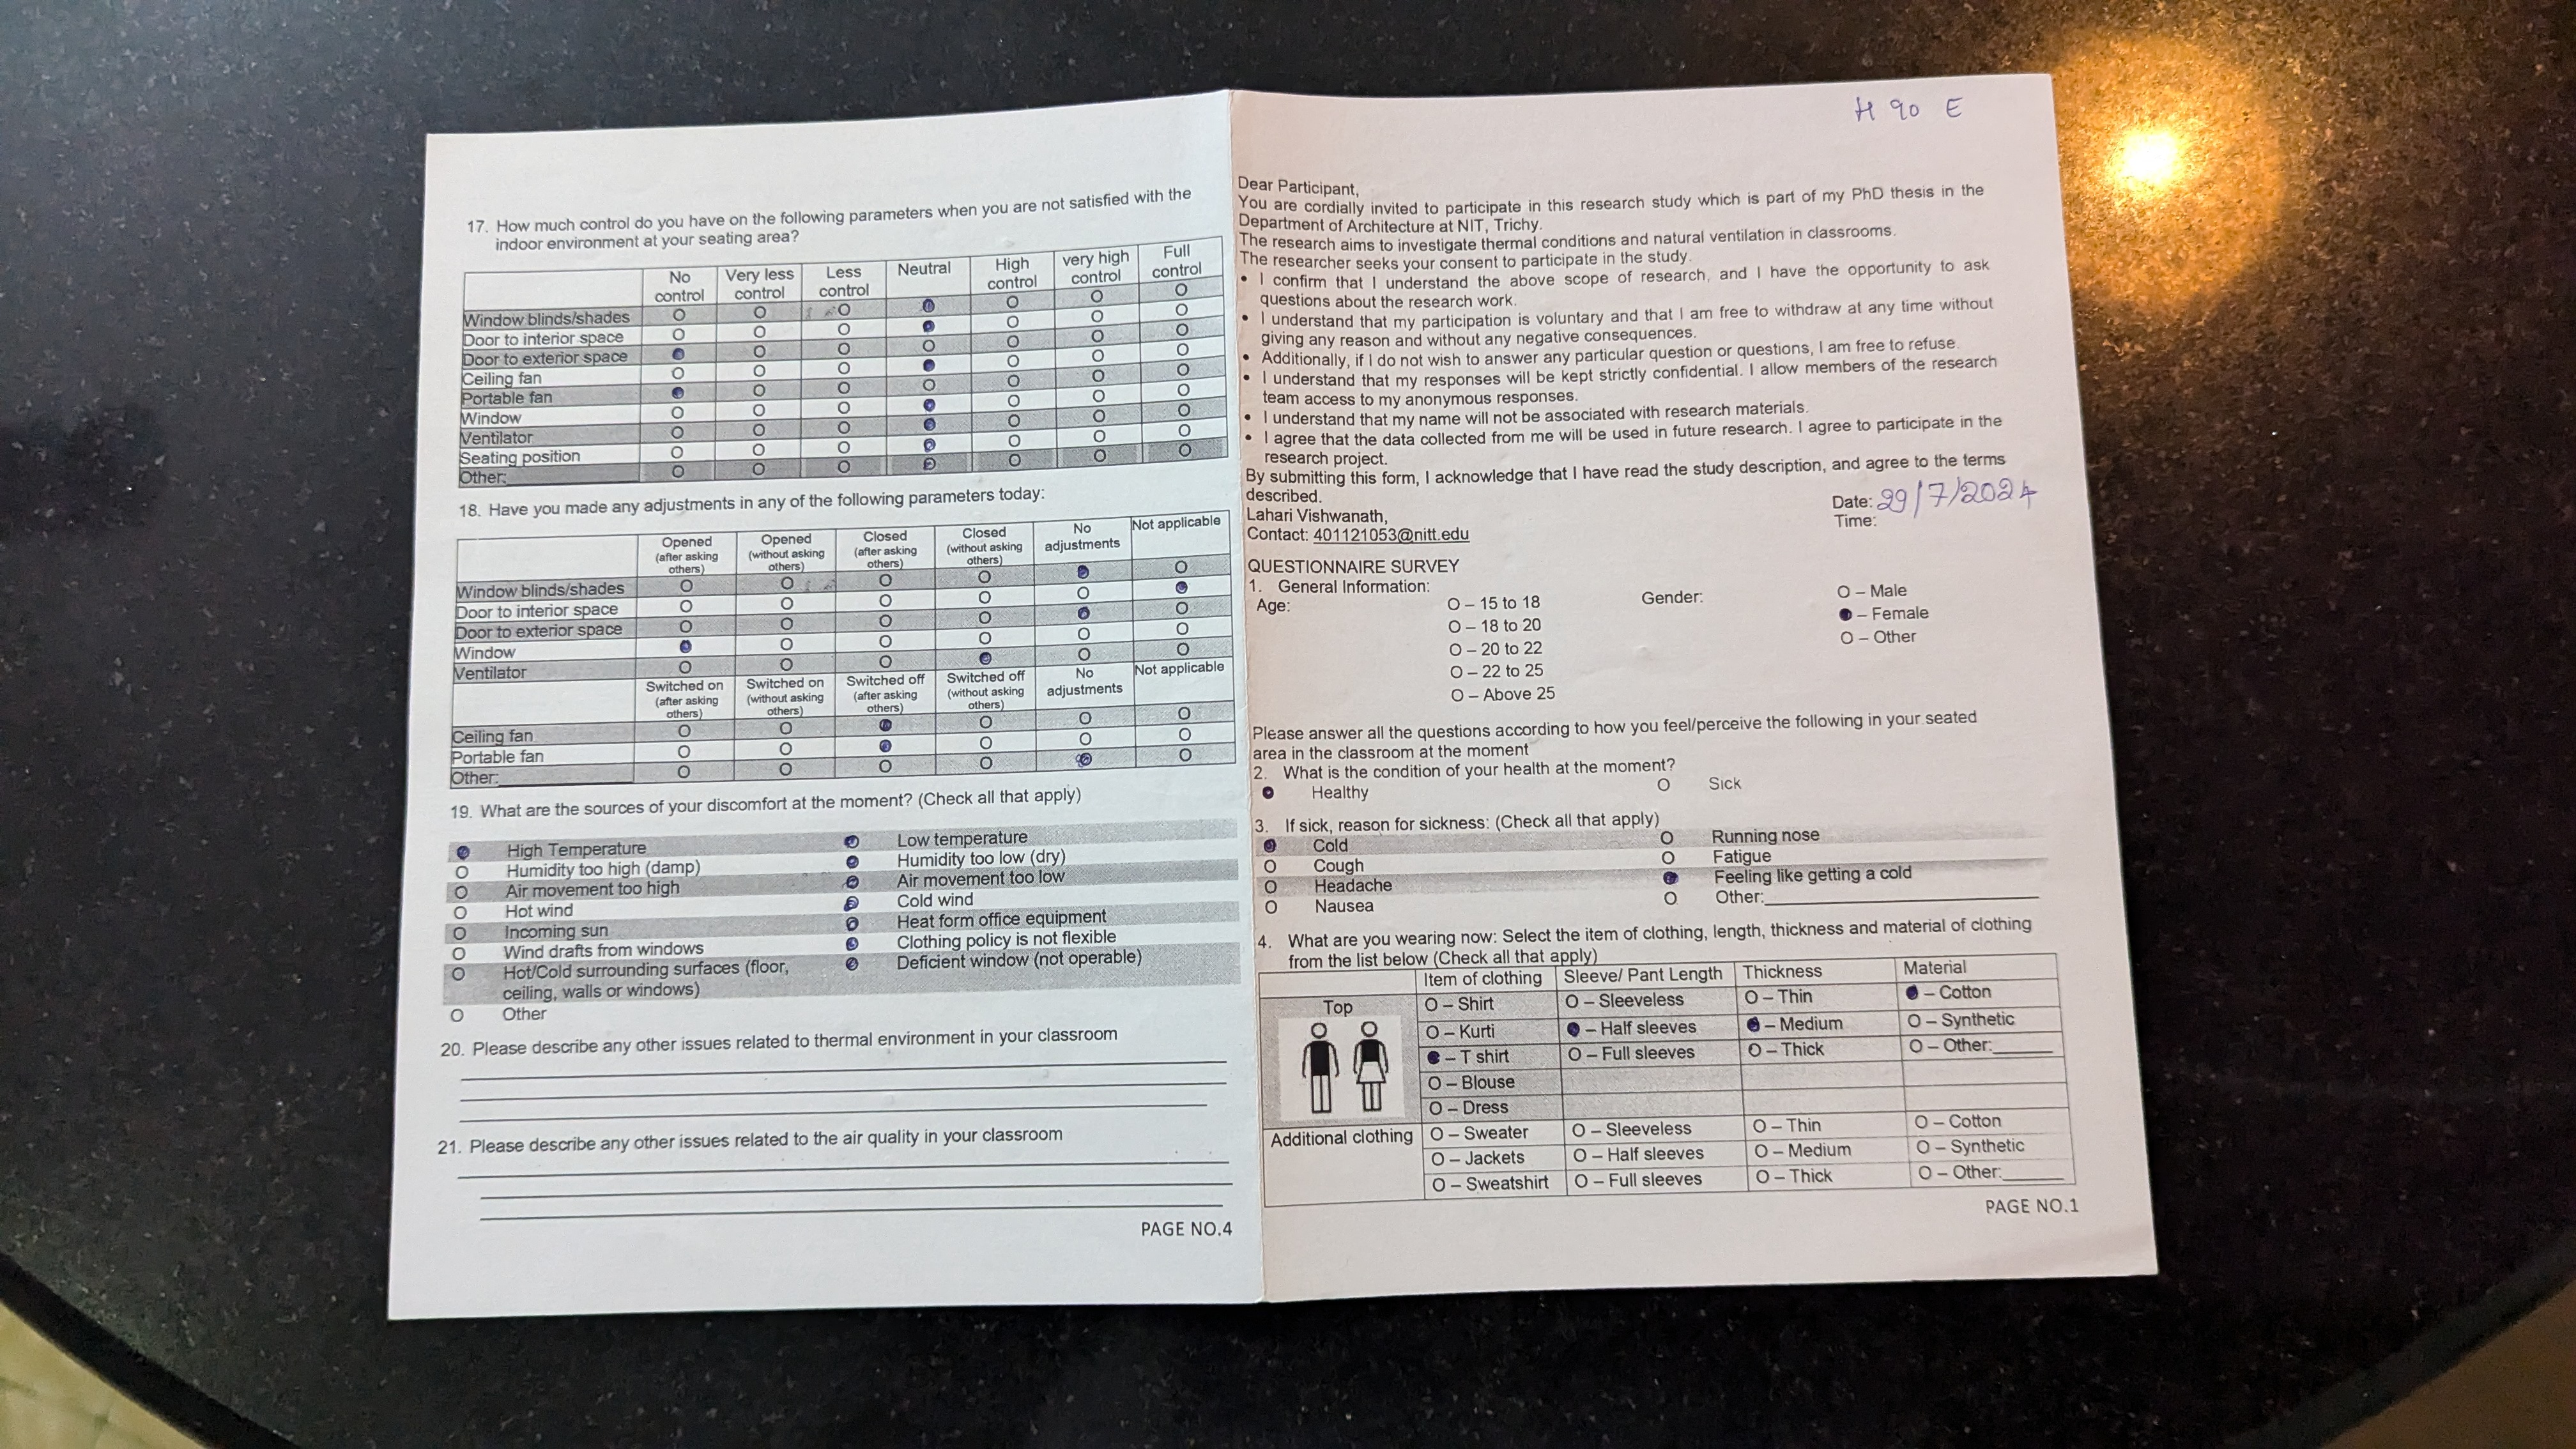 17. How much control do you have on the following parameters when you are not satisfied with the
indoor environment at your seating area?
No control Very less control Less control Neutral High control very high control Full control
Window blinds/shades O O O ● O O O
Door to interior space O O O ● O O O
Door to exterior space ● O O O O O O
Ceiling fan O O O ● O O O
Portable fan ● O O O O O O
Window O O O ● O O O
Ventilator O O O ● O O O
Seating position O O O ● O O O
Other: O O O ● O O O
18. Have you made any adjustments in any of the following parameters today:
Opened (after asking others) Opened (without asking others) Closed (after asking others) Closed (without asking others) No adjustments Not applicable
Window blinds/shades O O O O ● O
Door to interior space O O O O O ●
Door to exterior space O O O O ● O
Window ● O O O O O
Ventilator O O O ● O O
Switched on (after asking others) Switched on (without asking others) Switched off (after asking others) Switched off (without asking others) No adjustments Not applicable
Ceiling fan O O ● O O O
Portable fan O O ● O O O
Other: O O O O ● O
19. What are the sources of your discomfort at the moment? (Check all that apply)
● High Temperature ● Low temperature
O Humidity too high (damp) ● Humidity too low (dry)
O Air movement too high ● Air movement too low
O Hot wind ● Cold wind
O Incoming sun ● Heat form office equipment
O Wind drafts from windows ● Clothing policy is not flexible
O Hot/Cold surrounding surfaces (floor, ● Deficient window (not operable)
ceiling, walls or windows)
O Other
20. Please describe any other issues related to thermal environment in your classroom
21. Please describe any other issues related to the air quality in your classroom
PAGE NO.4
H 90 E
Dear Participant,
You are cordially invited to participate in this research study which is part of my PhD thesis in the
Department of Architecture at NIT, Trichy.
The research aims to investigate thermal conditions and natural ventilation in classrooms.
The researcher seeks your consent to participate in the study.
• I confirm that I understand the above scope of research, and I have the opportunity to ask
questions about the research work.
• I understand that my participation is voluntary and that I am free to withdraw at any time without
giving any reason and without any negative consequences.
• Additionally, if I do not wish to answer any particular question or questions, I am free to refuse.
• I understand that my responses will be kept strictly confidential. I allow members of the research
team access to my anonymous responses.
• I understand that my name will not be associated with research materials.
• I agree that the data collected from me will be used in future research. I agree to participate in the
research project.
By submitting this form, I acknowledge that I have read the study description, and agree to the terms
described.
Lahari Vishwanath,
Contact: 401121053@nitt.edu
Date: 29/7/2024
Time:
QUESTIONNAIRE SURVEY
1. General Information:
Age: O – 15 to 18 Gender: O – Male
O – 18 to 20 ● – Female
O – 20 to 22 O – Other
O – 22 to 25
O – Above 25
Please answer all the questions according to how you feel/perceive the following in your seated
area in the classroom at the moment
2. What is the condition of your health at the moment?
● Healthy O Sick
3. If sick, reason for sickness: (Check all that apply)
● Cold O Running nose
O Cough O Fatigue
O Headache ● Feeling like getting a cold
O Nausea O Other:
4. What are you wearing now: Select the item of clothing, length, thickness and material of clothing
from the list below (Check all that apply)
Item of clothing Sleeve/ Pant Length Thickness Material
Top O – Shirt O – Sleeveless O – Thin ● – Cotton
O – Kurti ● – Half sleeves ● – Medium O – Synthetic
● – T shirt O – Full sleeves O – Thick O – Other:
O – Blouse
O – Dress
Additional clothing O – Sweater O – Sleeveless O – Thin O – Cotton
O – Jackets O – Half sleeves O – Medium O – Synthetic
O – Sweatshirt O – Full sleeves O – Thick O – Other:
PAGE NO.1